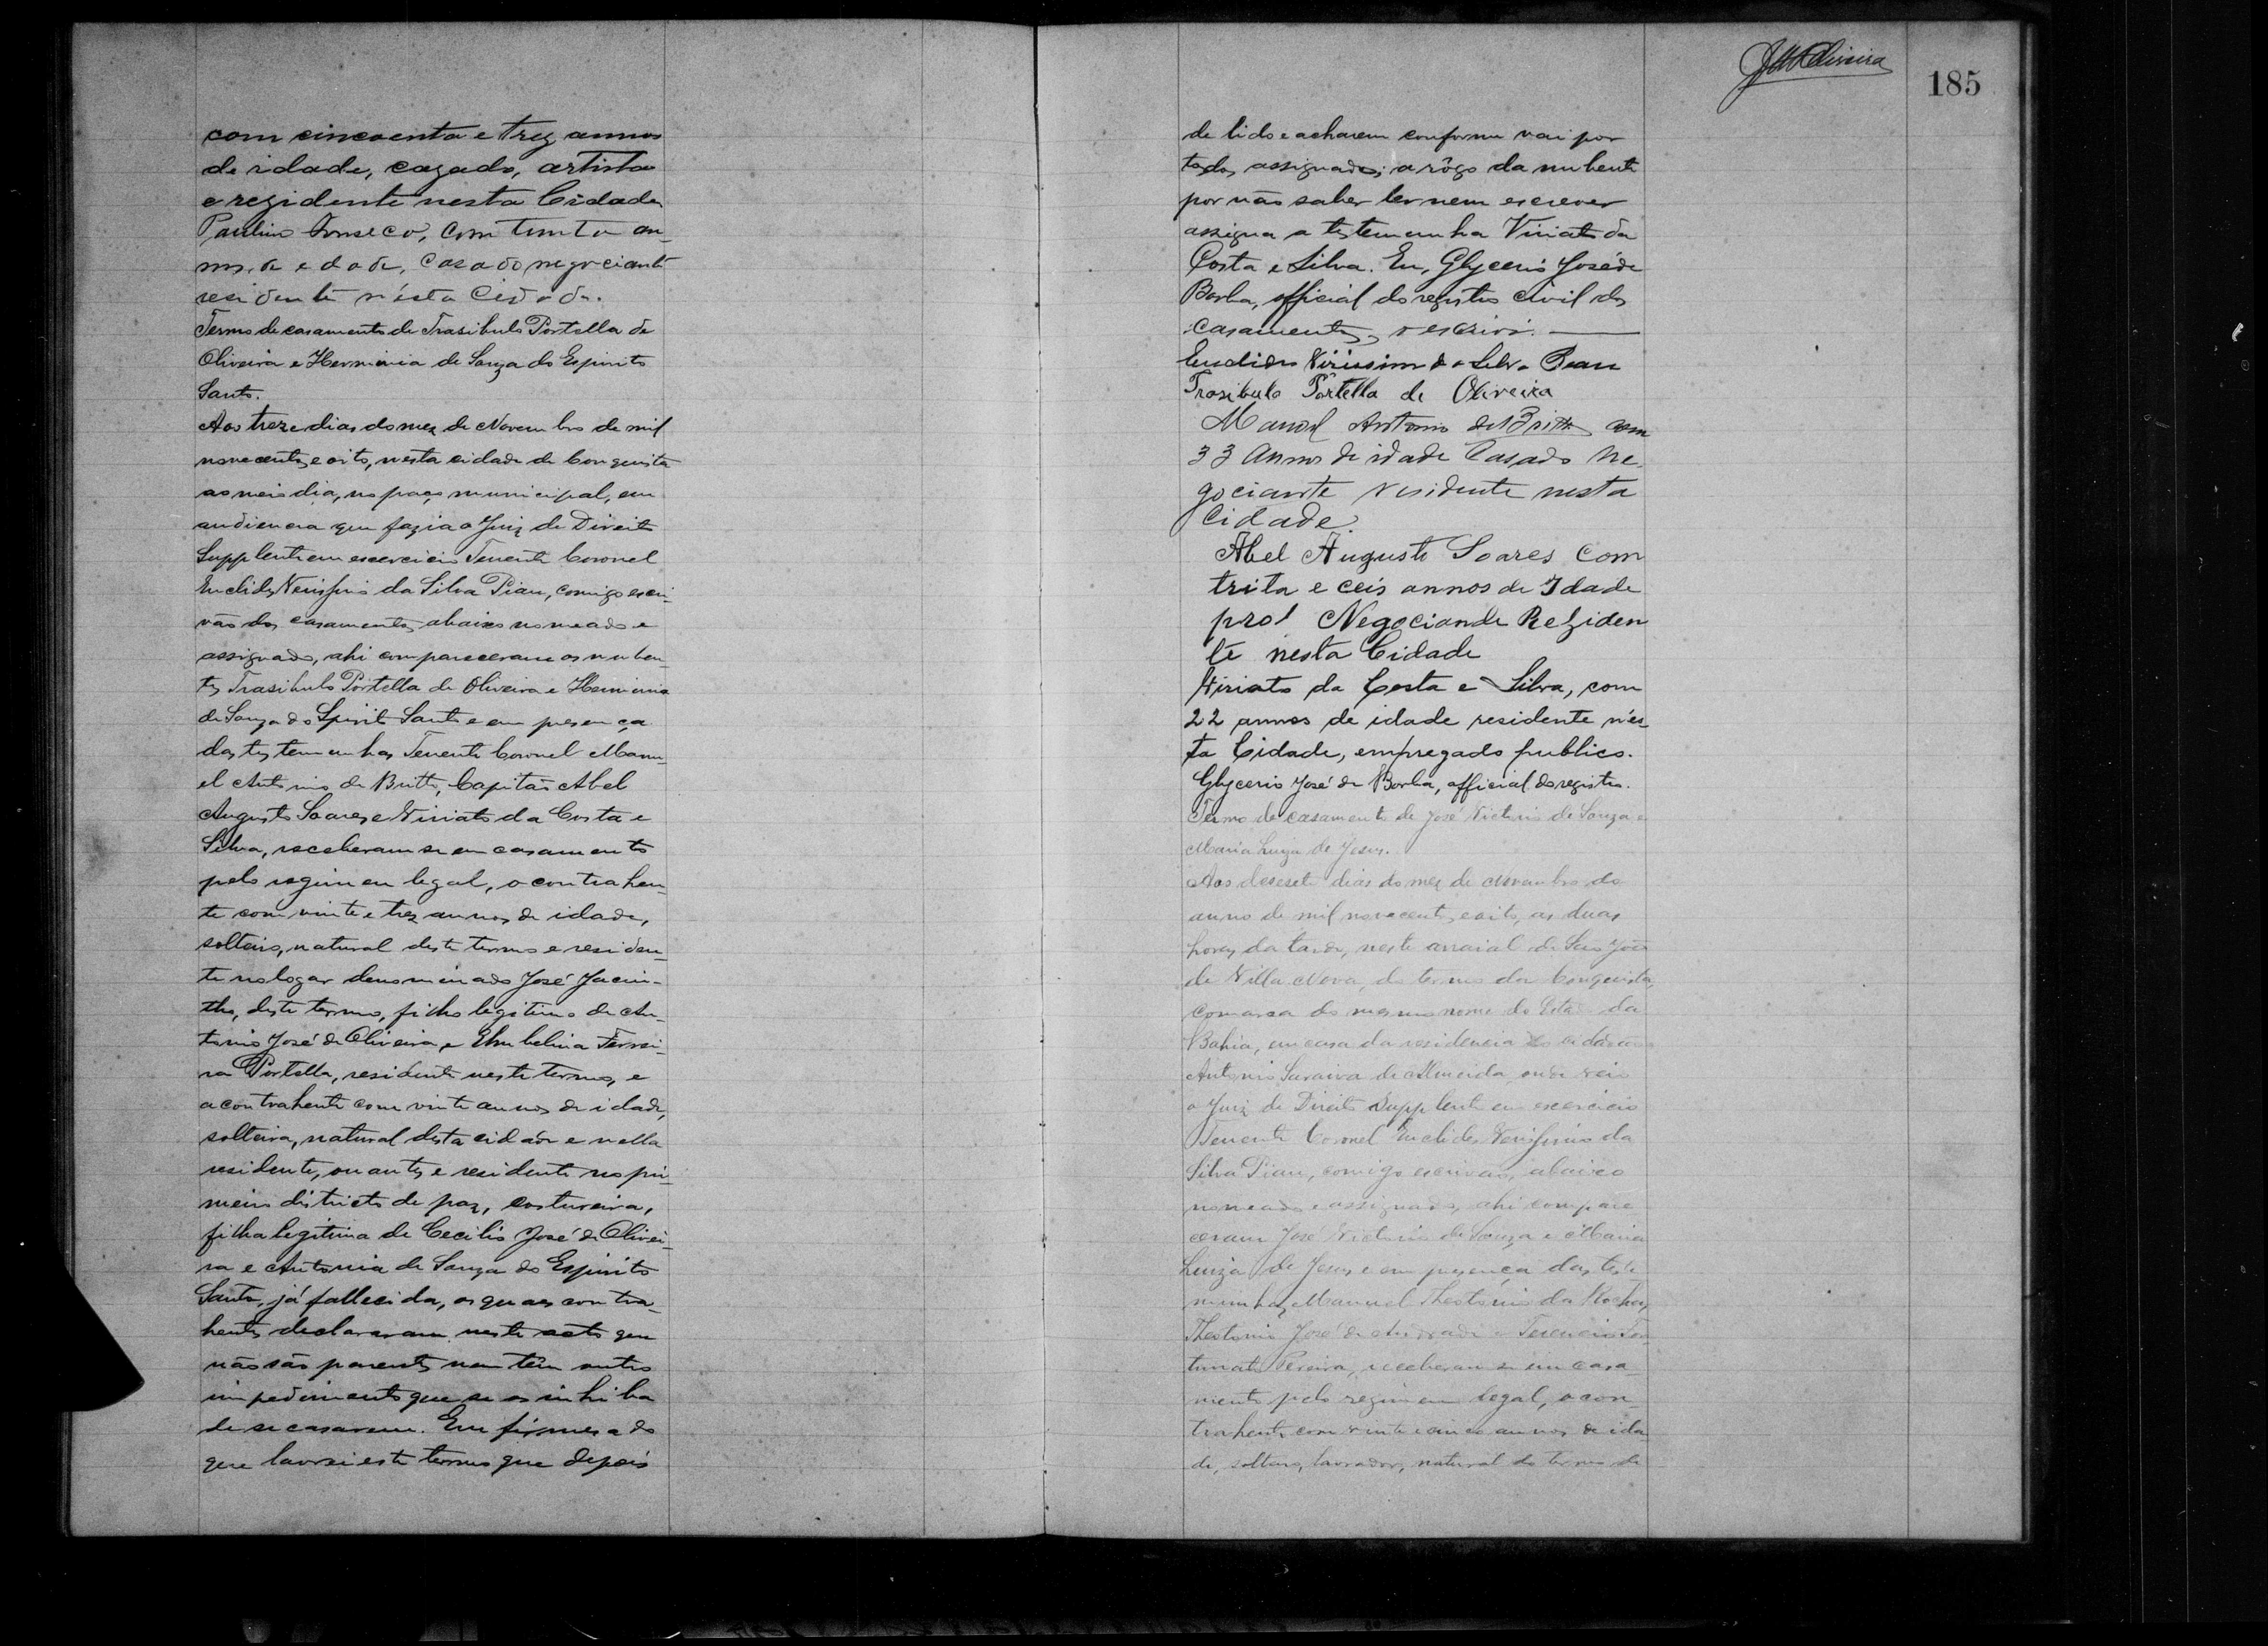 com cincoenta e trez annos
de idade, cazado, artista
e rezidente nesta Cidade
Paulino Fonseca, com trinta an-
nos, de edade, casado negociante
residente n'ésta Cidade.
Termo de casamento de Trasibulo Portella de
Oliveira e Herminia de Souza do Espirito
Santo.
Aos treze dias do mez de Novembro de mil
novecentos e oito, nesta cidade de Conquista
ao meio dia, no paço municipal, em
audiencia que fazia o Juiz de Direito
Supplente em exercicio Tenente Coronel
Euclides Verissimo da Silva Piau, comigo escri-
vão dos casamentos, abaixo nomeado e
assignado, ahi compareceram os nuben-
tes Trasibulo Portella de Oliveira e Herminia
de Souza do Spirito Santo e em presença
das testemunhas Tenente Coronel Manu-
el Antonio de Britto, Capitão Abel
Augusto Soares e Viriato da Costa e
Silva, receberam se em casamento
pelo regimen legal, o contrahen-
te com vinte e trez annos de idade,
solteiro, natural deste termo e residen-
te no logar denominado José Jacin-
tho, deste termo, filho legitimo de An-
tonio José de Oliveira e Ehubelina Ferrei-
ra Portella, residente neste termo, e
a contrahente com vinte annos de idade,
solteira, natural desta cidade e nella
residente, ou antes e residente no pri-
meiro districto de paz, costureira,
filha legitima de Cecilio José de Olivei-
ra e Antonia de Souza do Espirito
Santo, já fallecida, os quaes contra-
hentes declararam neste acto que
não são parentes nem têm outro
impedimento que se os inhiba
de se casarem. Em firmesa do
que lavrei este termo que depois
185
de lido e acharem conforme vai por
todos assignado; a rôgo da nubente
por não saber ler nem escrever
assigna a testemunha Viriato da
Costa e Silva. Eu, Glycerio José de
Borba, official do registro civil dos
casamentos, o escrivi.
Euclides Virissimo da Silva Piau
Trasibulo Portella de Oliveira
Manoel Antonio de Britto com
33 annos de idade Casado Ne-
gociante residente nesta
Cidade.
Abel Augusto Soares com
trita e ceis annos de Idade
prol Negociande Reziden
te nesta Cidade
Viriato da Costa e Silva, com
22 annos de idade residente n'es-
ta Cidade, empregado publico.
Glycerio José de Borba, official do registro.
Termo de casamento de José Victorio de Souza e
Maria Luiza de Jesus.
Aos desesete dias do mez de Novembro do
anno de mil novecentos e oito, as duas
horas da tarde, neste arraial de São João
de Villa Nova, do termo da Conquista,
comarca do mesmo nome do Estado da
Bahia, em casa da residencia do cidadão
Antonio Saraiva de Almeida, onde veio
o Juiz de Direito Supplente em exercicio
Tenente Coronel Euclides Verissimo da
Silva Piau, comigo escrivão, abaixo
nomeado e assignado, ahi compare
ceram José Victorio de Souza e Maria
Luiza de Jesus e em presença das teste
munhas, Manuel Theotonio da Rocha,
Theotonio José de Andrade e Terencio For
tunato Pereira, receberam se em casa-
mento pelo regimen legal, o con-
trahente com vinte e cinco annos de ida-
de, solteiro, lavrador, natural do termo de